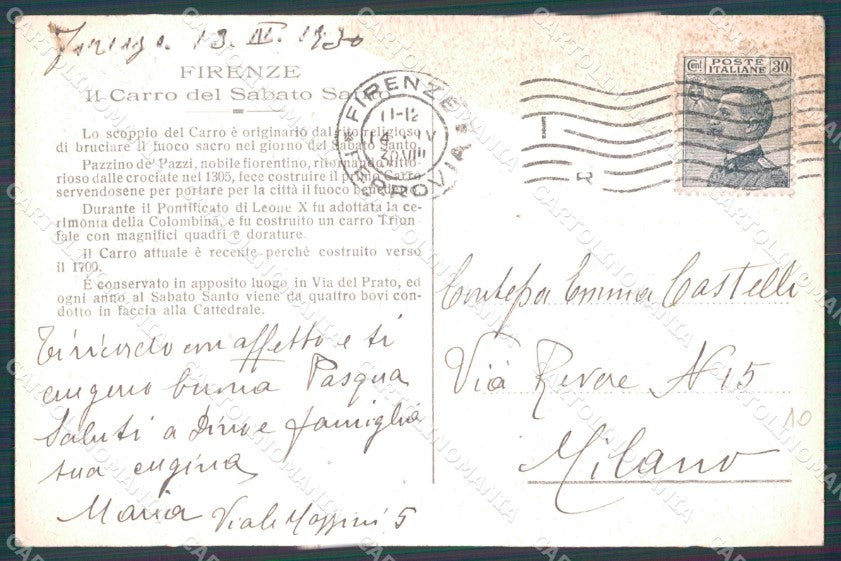 Firenze. 13. IV. 1930
FIRENZE
Il Carro del Sabato Santo
Lo scoppio del Carro è originario dal rito religioso
di bruciare il fuoco sacro nel giorno del Sabato Santo.
Pazzino de' Pazzi, nobile fiorentino, ritornando vitto-
rioso dalle crociate nel 1305, fece costruire il primo Carro
servendosene per portare per la città il fuoco benedetto.
Durante il Pontificato di Leone X fu adottata la ce-
rimônia della Colombina, e fu costruito un carro Trion-
fale con magnifici quadri e dorature.
Il Carro attuale è recente perchè costruito verso
il 1700.
È conservato in apposito luogo in Via del Prato, ed
ogni anno al Sabato Santo viene da quattro bovi con-
dotto in faccia alla Cattedrale.
Ti ricordo con affetto e ti
auguro buona Pasqua
Saluti a Dino e famiglia
tua cugina
Maria Viale Mazzini 5
FIRENZE
11-12
14 IV
30 VIII
FERROVIA
Cent POSTE ITALIANE 30
Contessa Emma Castelli
Via Revere N 15
Milano
10
CARTOLINOMANIA